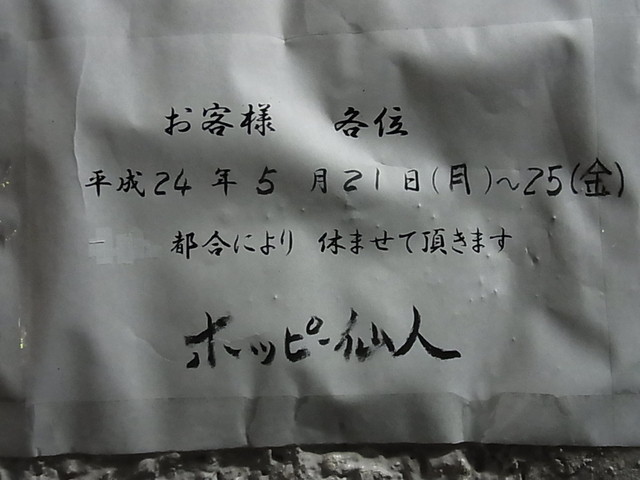 お客様　各位
平成24年5月21日(月)～25(金)
都合により 休ませて頂きます
ホッピー仙人